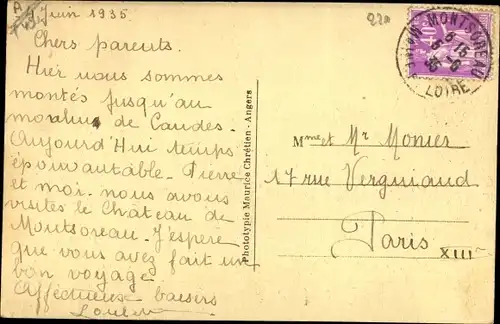 Juin 1935
Chers parents.
Hier nous sommes
montés jusqu'au
moulin de Candes.
Aujourd'Hui temps
épouvantable. Pierre
et moi. nous avons
visités le Château de
Montsoreau. J'espère
que vous avez fait un
bon voyage
Affectueux baisers
Phototypie Maurice Chrétien - Angers
220
MONTSOREAU
6-15
5-6
35
LOIRE
Mme et Mr Monier
17 rue Vergniaud
Paris
XIIIe